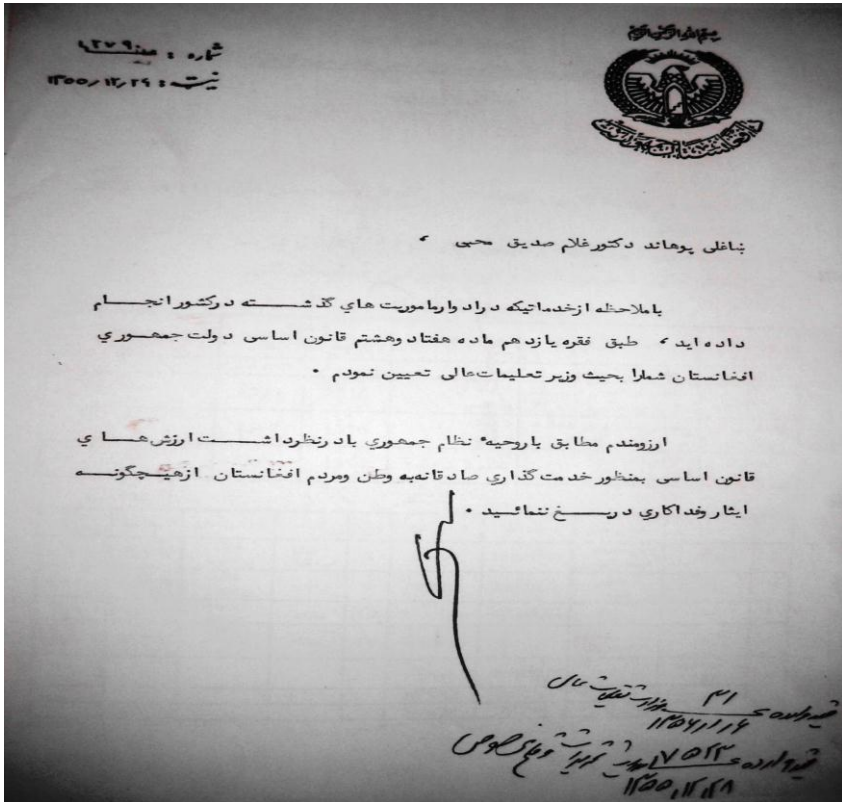 بسم الله الرحمن الرحيم
شماره : ۴۲۷۹
نېټه : ۱۳۵۵/۱۲/۲۶
ښاغلی پوهاند دکتور غلام صدیق محبی ،
باملاحظه ازخدماتیکه درادوارماموریت های گذشته درکشور انجام
داده اید ، طبق فقره یازدهم ماده هفتاد وهشتم قانون اساسی دولت جمهوري
افغانستان شمارا بحیث وزیر تعلیمات عالی تعیین نمودم .
ارزومندم مطابق باروحیهٔ نظام جمهوري بادرنظرداشت ارزش های
قانون اساسی بمنظور خدمت گذاري صادقانه به وطن ومردم افغانستان ازهیچگونه
ایثار وفداکاري دریغ ننمائید .
قید وارده ۳۱ وزارت تعلیمات عالی
۱۳۵۶/۱/۶
قید وارده ۱۷۵۲۳
۱۳۵۵/۱۲/۲۸